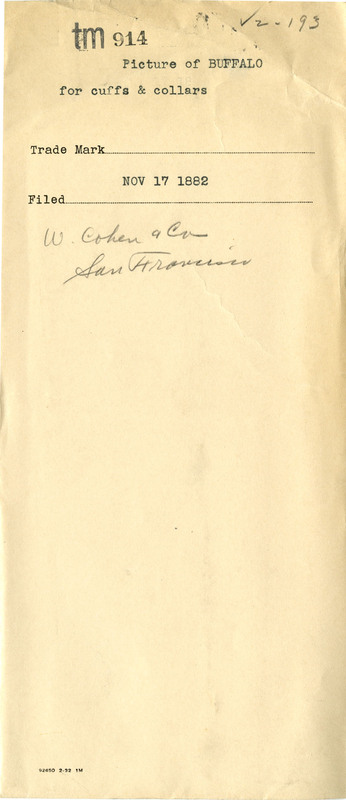 V2-193
tm 914
Picture of BUFFALO
for cuffs & collars
Trade Mark
NOV 17 1882
Filed
W. Cohen & Co
San Francisco
92450 2-32 1M